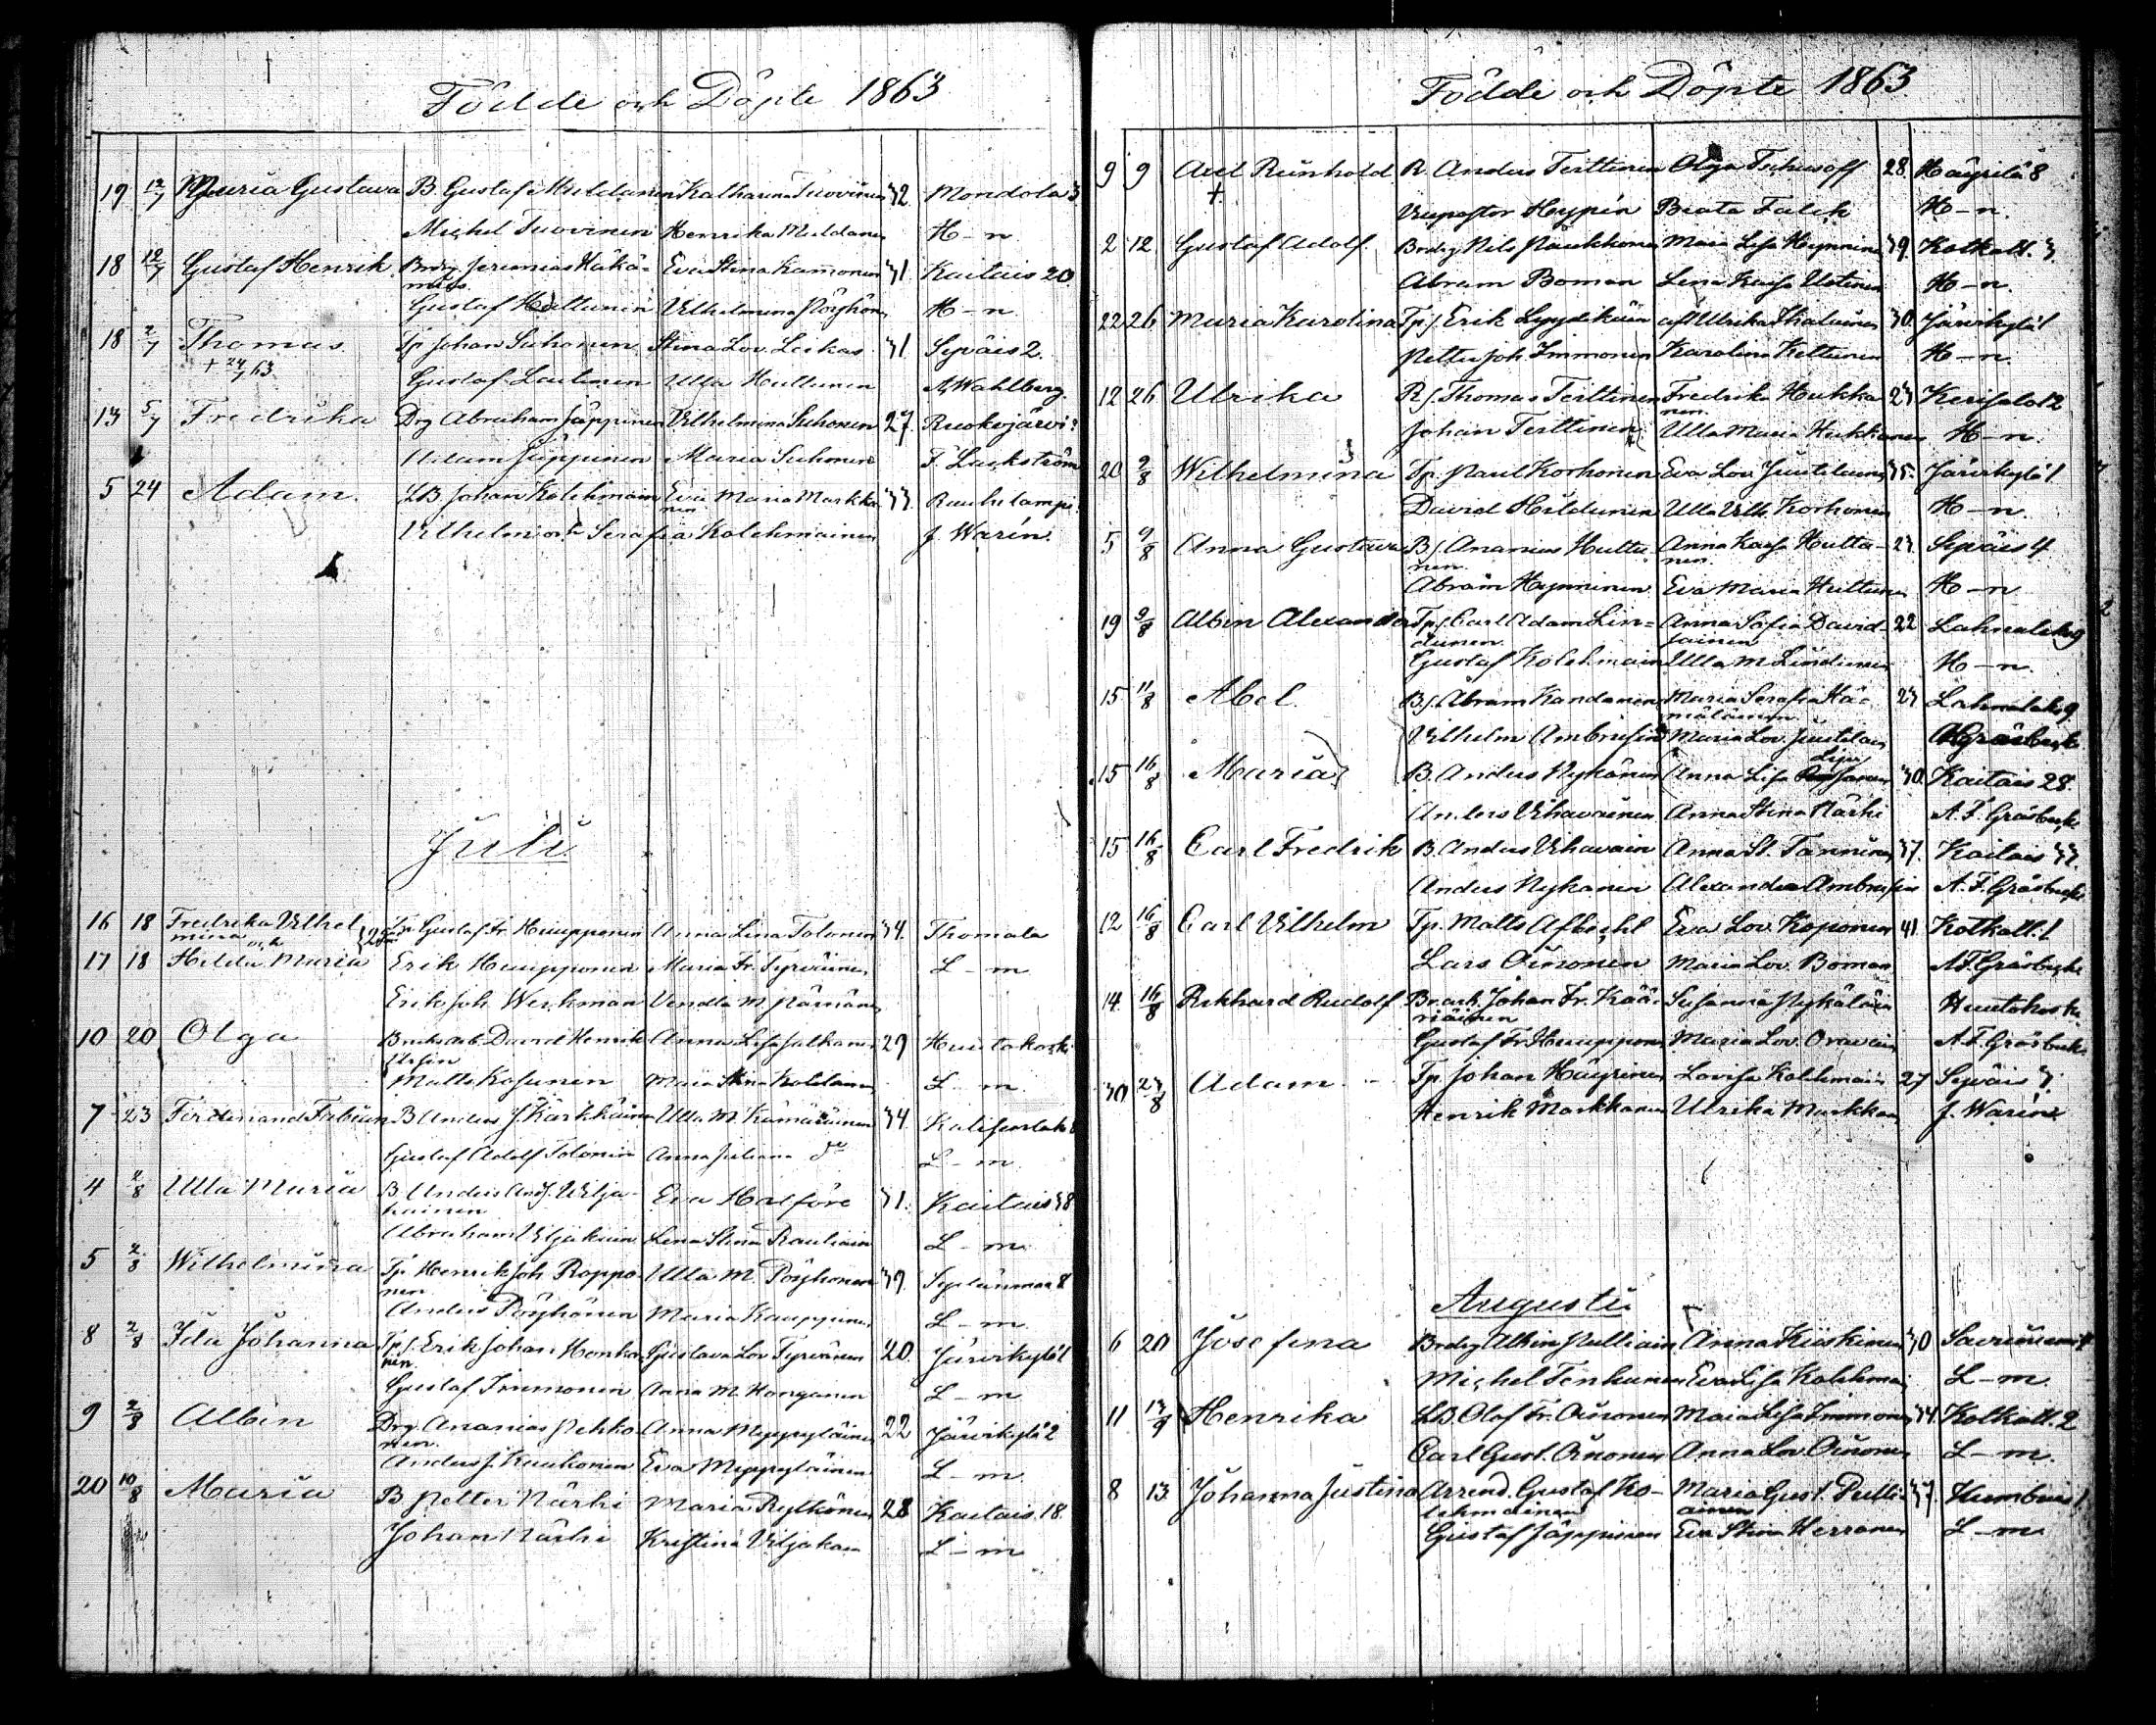 Födde och Döpte 1863
19 12/7 Maria Gustava B. Gustaf Muldanen Katharina Tuovinen 32 Mondola 3
Michel Tuovinen Henrika Muldanen H-n
18 12/7 Gustaf Henrik Brdrg Jeremias Häkä- Eva Stina Kamonen 31 Kaitais 20
Gustaf Huttunen Vilhelmina Pöyhön H-n
18 2/7 Thomas Tp Johan Suhonen Stina Lov. Leikas 31 Syväis 2.
+ 24/7 63
Gustaf Laulinen Ulla Huttunen A. Wahlberg
13 5/7 Fredrika Drg Abraham Jäppinen Vilhelmina Suhonen 27 Ruokojärvi
Adam Jäppinen Maria Suhonen F. Lackström
5 24 Adam. LB. Johan Kolehmain Eva Maria Markka- 33. Rauhalampi
nen
Vilhelm och Serafia Kolehmainen J. Warén
Juli
16 18 Fredrika Vilhel- Gustaf Fr. Huupponen Anna Lina Tolonen 34. Thomala
mina och
17 18 Hilda Maria Erik Huupponen Maria Fr. Tyrväinen L-m
Erik Joh. Weckman Vendla M.
10 20 Olga Bruksarb. David Henrik Anna Lisa Jalkanen 29 Huutokoski
Matts Kosunen Maria Stina L-m
7 23 Ferdinand Fabian B Anders J. Kärkkäinen Ulla M. Kämäräinen 34.
Gustaf Adolf Tolonen Anna Juliana do L-m
4 2/8 Ulla Maria B. Anders And. Vilja- Eva Halföre 31. Kaitais 38
kainen
Abraham Viljakain Lena Stina Rautiain L-m
5 2/8 Wilhelmina Tp Henrik Joh Roppo- Ulla M. Pöyhönen 39. Sydänmaa 8
nen
Anders Pöyhönen Maria Kauppinen L-m
8 2/8 Ida Johanna Tp/s. Erik Johan Honka- Gustava Lov Tyrvänen 20. Järvikylä 1
nen.
Gustaf Immonen Anna M. Honganen L-m
9 2/8 Albin Drg. Ananias Pekko- Anna Myyryläinen 22 Järvikylä 2
nen.
Anders J. Kuukonen Eva Myyryläinen L-m
20 10/8 Maria B Petter Närhi Maria Rytkönen 28 Kaitais. 18.
Johan Närhi Kristina Viljakain L-m
Födde och Döpte 1863
9 9 Axel Reinhold R. Anders Terttinen Olga 28. Häyrilä 8
+
Vicepastor Heypén Beata Falck H-n.
2 12. Gustaf Adolf. Brdrg Nils Paukkonen Maria Lisa Heynninen 39. Kotkatl. 3
Abram Boman Lena Kaisa Ustinen H-n.
22 26 Maria Karolina Tp/s. Erik Lyydikäin Ulrika 30. Järvikylä 1
Petter Joh Immonen Karolina Keltunen H-n
12 26 Ulrika R/s. Thomas Terttinen Fredrika Hukka- 23 Kerisalo 12
nen.
Johan Terttinen Ulla Maria Hukkanen H-n.
20 9/8 Wilhelmina Tp. Paul Korhonen Eva Lov. Juutilainen 35. Järvikylä 1
David Hildunen Ulla Vilh. Korhonen H-n.
5 9/8 Anna Gustava B/s. Ananias Huttu- Anna Kaisa Hutta- 23. Syväis 4.
nen. nen.
Abram Heynninen Eva Maria Huttunen H-n
19 9/8 Albin Alexander Tp/s. Carl Adam Lin- Anna Sofia David- 22 Lahnalaks 9
dunen. sainen
Gustaf Kolehmain Ulla M Lindunen H-n.
15 11/8 Abel. B/s. Abram Kandanen Maria Serafia Hä- 23 Lahnalaks 9
mäläinen.
Vilhelm Ambrusin Maria Lov. Juutilain A Gråsbeck
15 16/8 Maria B. Anders Nykänen Anna Lisa 30. Kaitais 28.
Anders Vihavainen Anna Stina Närhi A. F. Gråsbeck
15 16/8 Carl Fredrik B. Anders Vihavain Anna St. Tanninen 37. Kaitais 33.
Anders Nykänen Alexandra Ambrusin A. F. Gråsbeck
12 16/8 Carl Vilhelm Tp. Matts Afbrecht Eva Lov. Koponen 41 Kotkatl. 1
Lars Oinonen Maria Lov. Boman A. F. Gråsbeck
14 16/8 Rikhard Rudolf Br.arb. Johan Fr. Kää- Susanna Nykäläin Huutokoski
riäinen
Gustaf Fr. Huupponen Maria Lov. Oravain A. F. Gråsbeck
30 23/8 Adam Tp. Johan Häyrinen Lovisa Kolehmain 27 Syväis 3.
Henrik Markkanen Ulrika Markkan J. Warén
Augusti
6 20 Josefina Brdrg Albin Pulliain Anna Kiiskinen 30 Savuniemi
Michel Tenhunen Eva Lisa Kolehmai L-m.
11 13/9 Henrika LB. Olof Fr. Oinonen Maria Lisa Immonen 34. Kotkatl. 2
Carl Gust. Oinonen Anna Lov Oinonen L-m.
8 13 Johanna Justina Arrend. Gustaf Ko- Maria Gust. Pulli- 37.
lehmainen ainen
Gustaf Jäppinen Eva Stina Hirvonen L-m